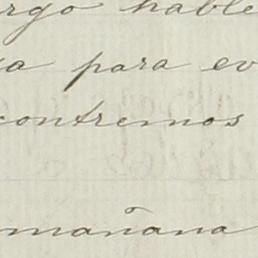 argo hable
a para ev
contremos
mañana